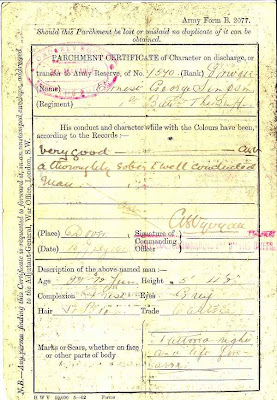 Army Form B. 2077.
Should this Parchment be lost or mislaid no duplicate of it can be
obtained.
PARCHMENT CERTIFICATE of Character on discharge, or
transfer to Army Reserve, of No. 1370 (Rank)
(Name) Ernest George Simpson
(Regiment) 1st Battn The Buffs
His conduct and character while with the Colours have been,
according to the Records:—
very good —
a thoroughly sober & well conducted
man
(Place) Dover
(Date)
Signature of
Commanding
Officer
Description of the above-named man:—
Age Height 5
Complexion Eyes Grey
Hair Trade
Marks or Scars, whether on face
or other parts of body
Tattooed right
and left
N.B.—Any person finding this Certificate is requested to forward it, in an unstamped envelope, addressed
to the Adjutant-General, War Office, London, S.W.
Forms